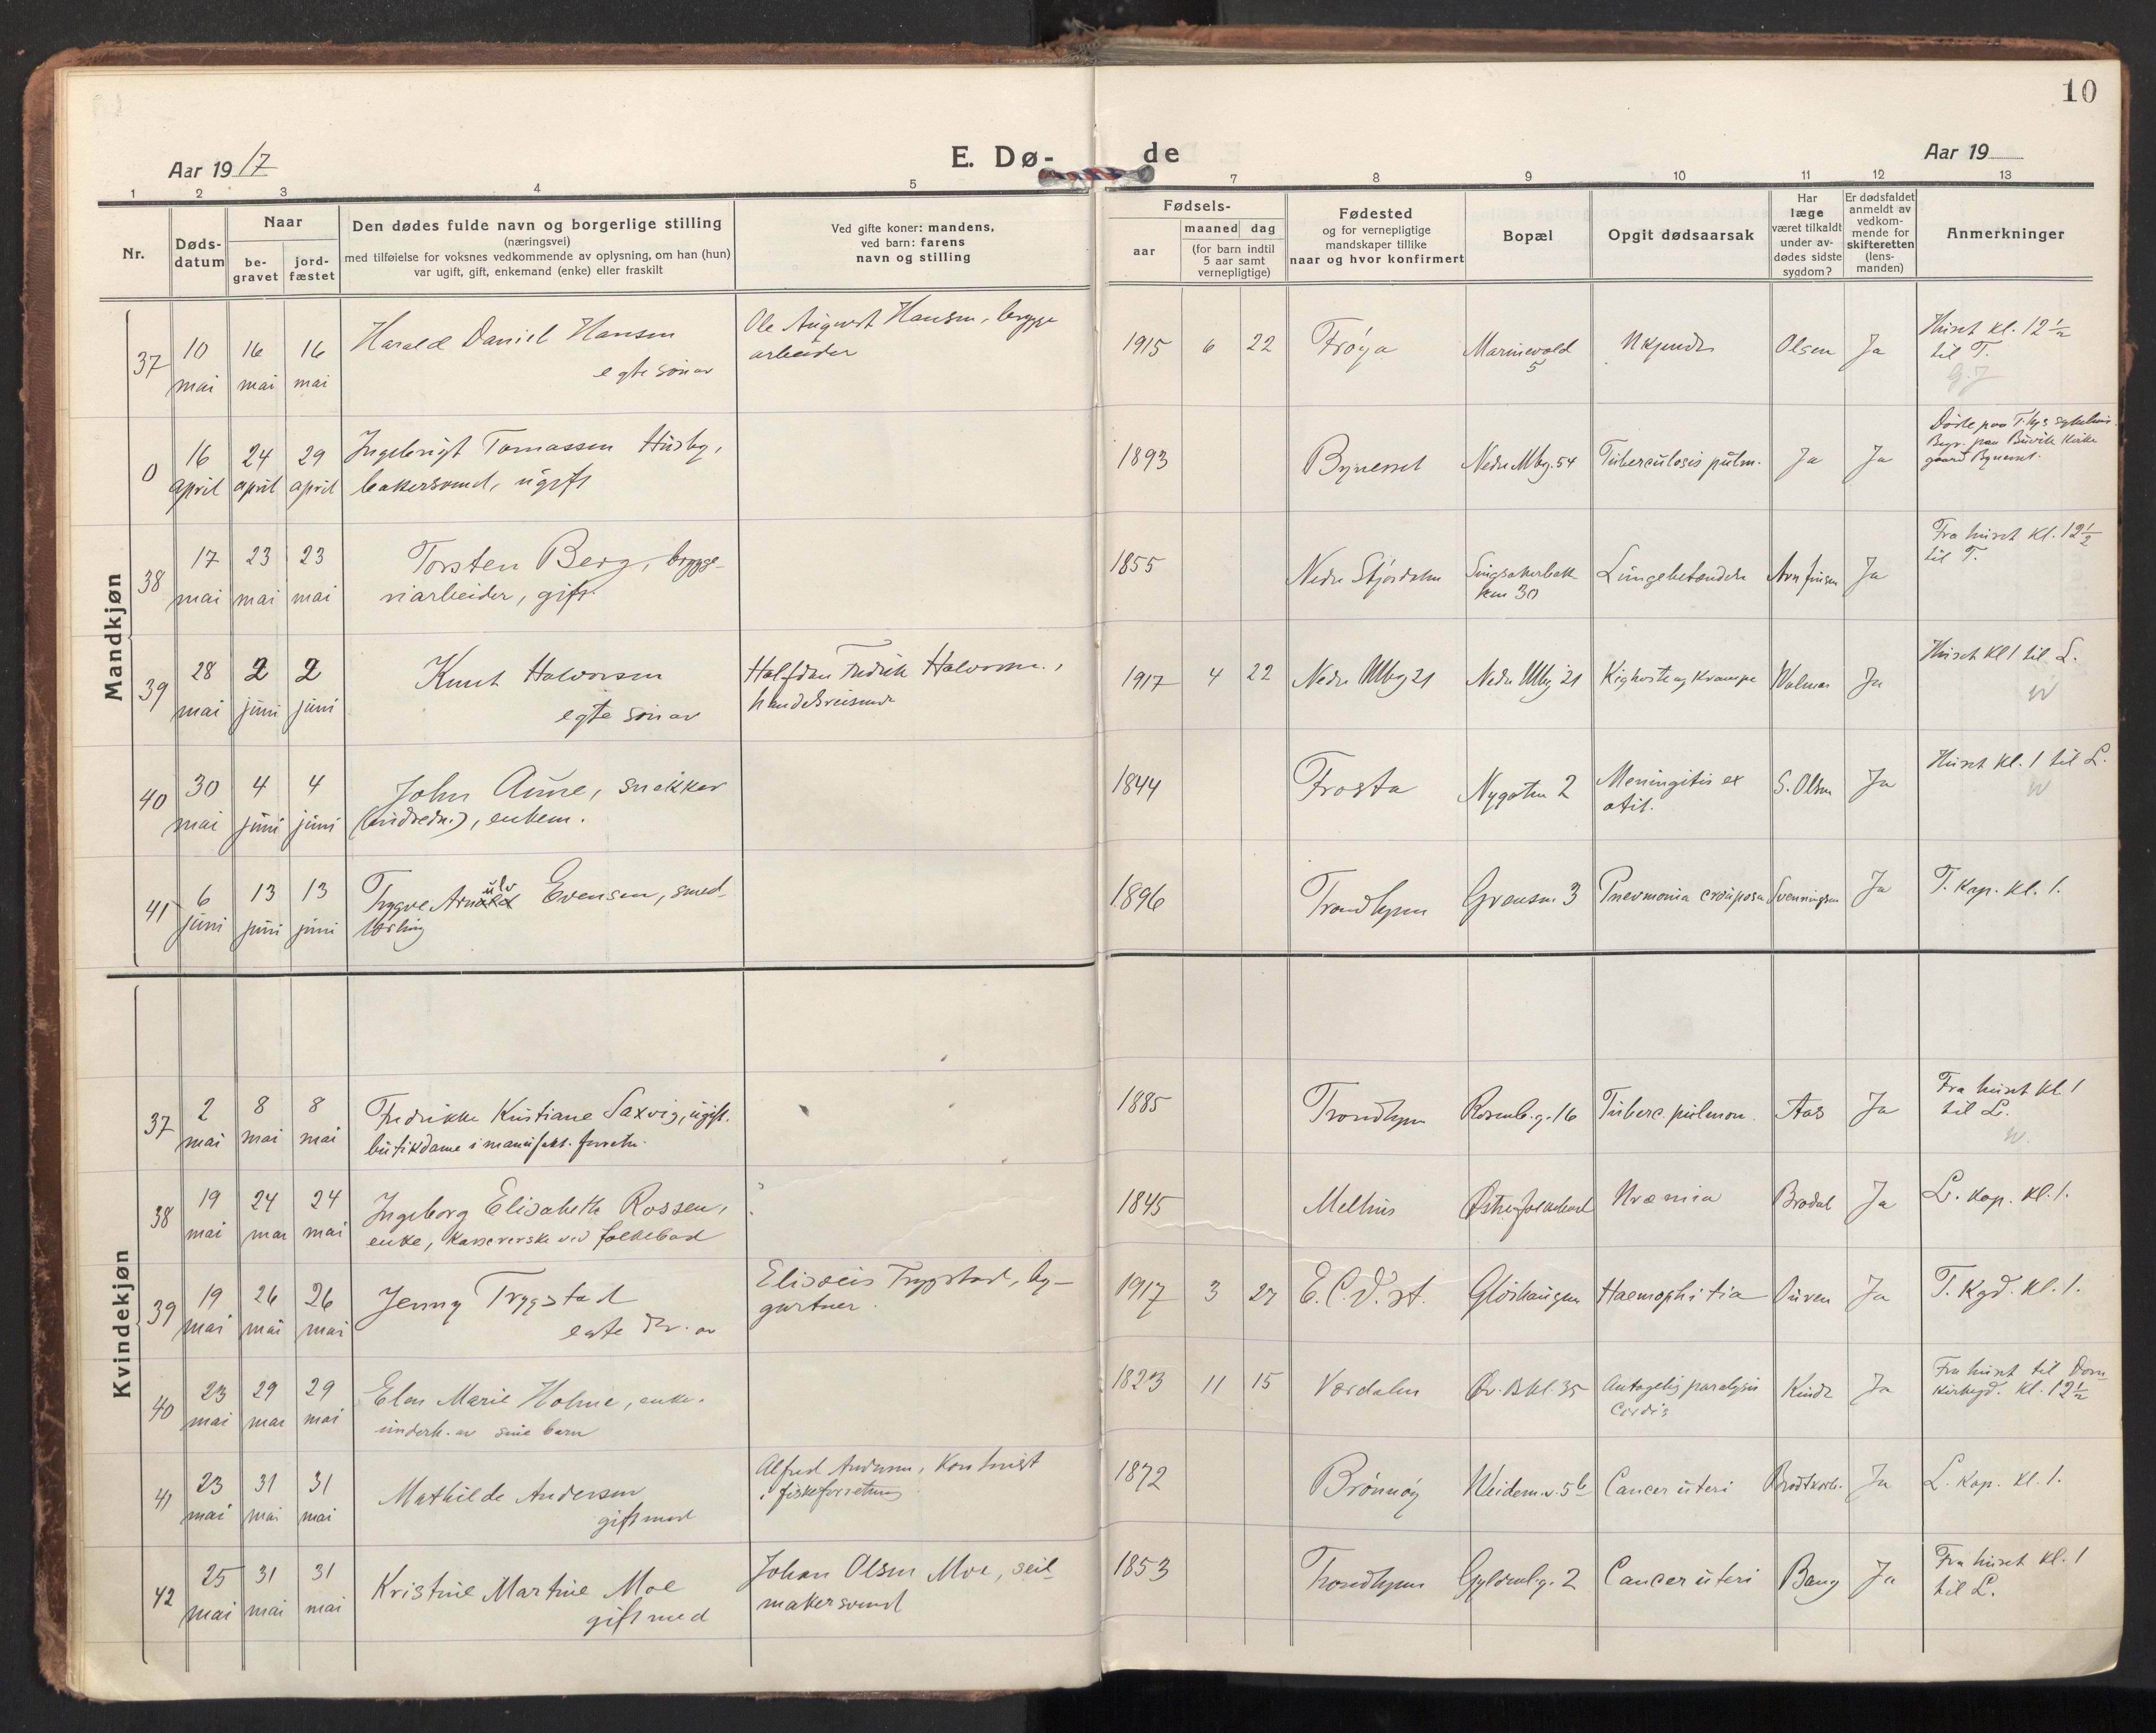 10
Aar 19 17
E. Dø-
de
Aar 19
1 2 3 4 5 7 8 9 10 11 12 13
Nr.
Døds-
datum
Naar
be-
gravet
jord-
fæstet
Den dødes fulde navn og borgerlige stilling
(næringsvei)
med tilføielse for voksnes vedkommende av oplysning, om han (hun)
var ugift, gift, enkemand (enke) eller fraskilt
Ved gifte koner: mandens,
ved barn: farens
navn og stilling
Fødsels-
aar
maaned dag
(for barn indtil
5 aar samt
vernepligtige)
Fødested
og for vernepligtige
mandskaper tillike
naar og hvor konfirmert
Bopæl
Opgit dødsaarsak
Har
læge
været tilkaldt
under av-
dødes sidste
sygdom?
Er dødsfaldet
anmeldt av
vedkom-
mende for
skifteretten
(lens-
manden)
Anmerkninger
Mandkjøn
37
10
mai
16
mai
16
mai
Harald Daniel Hansen
egte søn av
Ole August Hansen, brygge
arbeider
1915 6 22
Frøya
5
Ukjendt
Olsen
Ja
Huset kl. 12 1/2
til T.
G.J
0
16
april
24
april
29
april
Ingebrigt Tomassen Husby,
bakersvend, ugift
1893
Bynesset
Nedre Mbg. 54
Tuberculosis pulm.
Ja
Ja
Døde paa T.hjs sykehus.
Begr. paa Buvik kirke
gaard Bynesset.
38
17
mai
23
mai
23
mai
Torsten Berg, brygge-
riarbeider, gift.
1855
Nedre Stjørdalen
Singsakerbak
ken 30
Lungebetændelse
Arnfinsen
Ja
Fra huset kl. 12 1/2
til T.
39
28
mai
2
juni
2
juni
Knut Halvorsen
egte søn av
Halfdan Fredrik Halvorsen,
handelsreisende
1917 4 22
Nedre Mbg 21
Nedre Mbg 21
Kighoste og Krampe
Ja
Huset kl 1 til L.
W
40
30
mai
4
juni
4
juni
John Aune, snekker
(understr.), enkem.
1844
Frosta
Nygaten 2
Meningitis ex
otit.
S. Olsen
Ja
Huset kl. 1 til L.
W
41
6
juni
13
juni
13
juni
ulv
Trygve Arnold Evensen, smed-
lærling
1896
Trondhjem
Grensen 3
Pnevmonia crouposa
Svenningsen
Ja
T. Kap. kl. 1.
Kvindekjøn
37
2
mai
8
mai
8
mai
Fredrikke Kristiane Saxvig, ugift.
butikdame i manufakt. forretn.
1885
Trondhjem
Rosenb.g. 16
Tuberc. pulmon.
Aas
Ja
Fra huset kl 1
til L.
W.
38
19
mai
24
mai
24
mai
Ingeborg Elisabeth Rossen,
enke, kassererske ved folkebad
1845
Melhus
Østre folkebad
Uræmia
Brodal
Ja
L. Kap. kl. 1.
39
19
mai
26
mai
26
mai
Jenny Trygstad
egte dtr. av
Elisæus Trygstad, by-
gartner.
1917 3 27
E.C.D. st.
Gløshaugen
Haemophitia
Duren
Ja
T. Kgd. kl. 1.
40
23
mai
29
mai
29
mai
Elen Marie Holme, enke.
underh. av sine barn
1823 11 15
Værdalen
Øv. Bkl. 35
Antagelig paralysis
Cordis
Ja
Fra huset til Dom
kirkegd. kl. 12 1/2
41
23
mai
31
mai
31
mai
Mathilde Andersen
gift med
Alfred Andersen, Kontorist
i fiskeforretning
1872
Brønnøy
Weidem.v. 5b
Cancer uteri
Ja
L. Kap. kl. 1.
42
25
mai
31
mai
31
mai
Kristine Martine Moe
gift med
Johan Olsen Moe, seil-
makersvend
1853
Trondhjem
Gyldenl.g. 2
Cancer uteri
Bang
Ja
Fra huset kl. 1
til L.